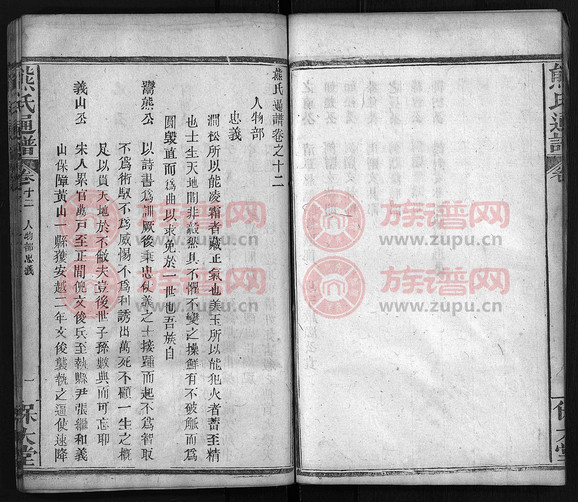 熊氏通譜卷之十二
人物部
忠義
澗松所以能凌霜者藏正氣也美玉所以能犯火者蓄至精
也士生天地間非毅然具不懼不變之操鮮有不破觚而爲
圓毀直而爲曲以求免於一世也吾族自
鬻熊公
以詩書爲訓厥後秉忠仗義之士接踵而起不爲智取
不爲術馭不爲威惕不爲利誘出萬死不顧一生之概
足以貫天地於不敝夫豈後世子孫數典而可忘耶
義山公
宋人累官萬戶至正間
文後兵至執縣尹張繼和義
山保障黃山一縣獲安越二年文後襲執之逼使速降
熊氏通譜
卷十二
人物部忠義
一
保大堂
熊氏通譜
卷
保大堂
族谱网
www.zupu.cn
族谱网
www.zupu.cn
族谱网
www.zupu.cn
族谱网
www.zupu.cn